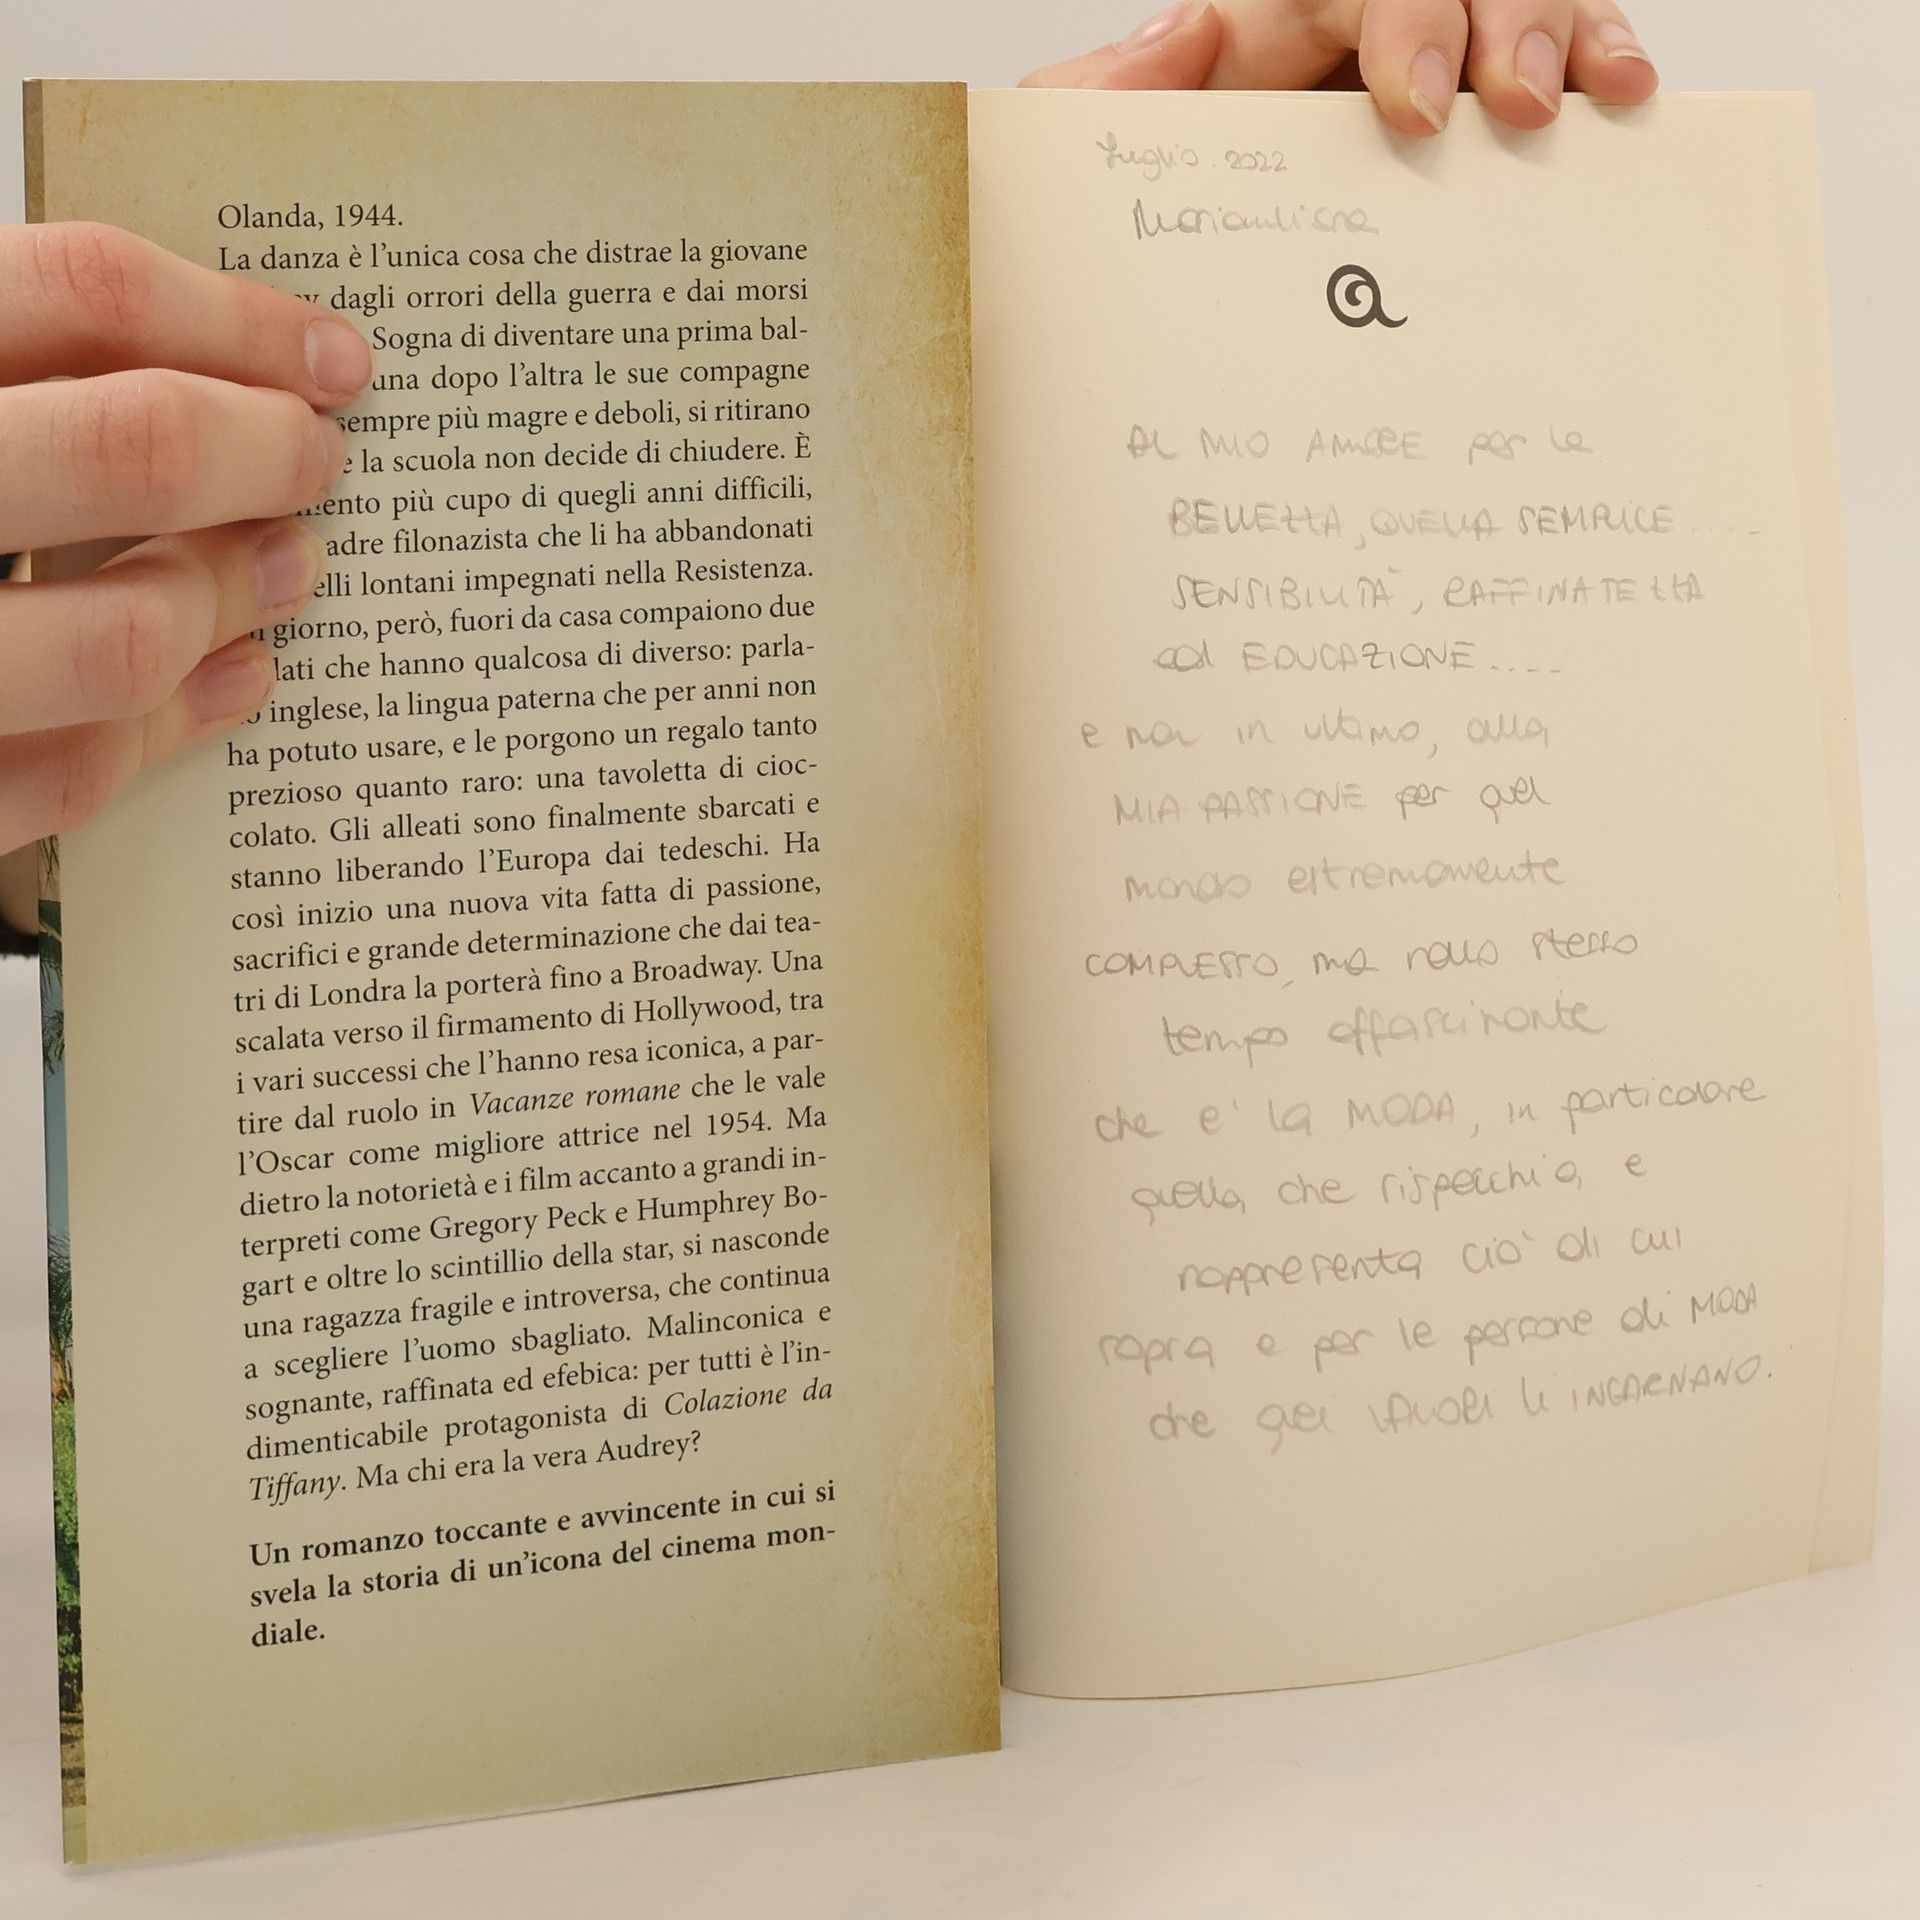 Olanda, 1944.
La danza è l'unica cosa che distrae la giovane
dagli orrori della guerra e dai morsi
Sogna di diventare una prima bal-
una dopo l'altra le sue compagne
sempre più magre e deboli, si ritirano
e la scuola non decide di chiudere. È
ento più cupo di quegli anni difficili,
adre filonazista che li ha abbandonati
elli lontani impegnati nella Resistenza.
giorno, però, fuori da casa compaiono due
lati che hanno qualcosa di diverso: parla-
inglese, la lingua paterna che per anni non
ha potuto usare, e le porgono un regalo tanto
prezioso quanto raro: una tavoletta di cioc-
colato. Gli alleati sono finalmente sbarcati e
stanno liberando l'Europa dai tedeschi. Ha
così inizio una nuova vita fatta di passione,
sacrifici e grande determinazione che dai tea-
tri di Londra la porterà fino a Broadway. Una
scalata verso il firmamento di Hollywood, tra
i vari successi che l'hanno resa iconica, a par-
tire dal ruolo in Vacanze romane che le vale
l'Oscar come migliore attrice nel 1954. Ma
dietro la notorietà e i film accanto a grandi in-
terpreti come Gregory Peck e Humphrey Bo-
gart e oltre lo scintillio della star, si nasconde
una ragazza fragile e introversa, che continua
a scegliere l'uomo sbagliato. Malinconica e
sognante, raffinata ed efebica: per tutti è l'in-
dimenticabile protagonista di Colazione da
Tiffany. Ma chi era la vera Audrey?
Un romanzo toccante e avvincente in cui si
svela la storia di un'icona del cinema mon-
diale.
Luglio. 2022
AL MIO AMORE per la
BELLEZZA, QUELLA SEMPLICE ....
SENSIBILITÀ, RAFFINATEZZA
ed EDUCAZIONE....
e non in ultimo, alla
MIA PASSIONE per quel
mondo estremamente
COMPLESSO, ma nello stesso
tempo affascinante
che e' la MODA, in particolare
quella che rispecchia e
rappresenta ciò di cui
sopra e per le persone di MODA
che quei VALORI li INCARNANO.